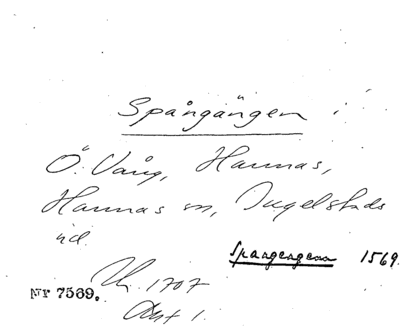 Spångängen i
Ö. Vång, Hannas,
Hannas sn, Ingelstads
hd.
Spangengenn 1569.
Lh. 1707
Nr 7569.
Akt 1.